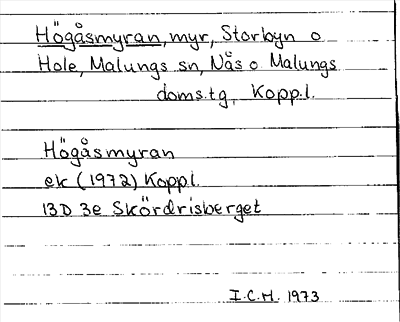 Högåsmyran, myr, Storbyn o
Hole, Malungs sn, Nås o Malungs
doms.tg, Koppl.
Högåsmyran
ek (1972) Koppl.
13D 3e Skördrisberget
I.C.H. 1973